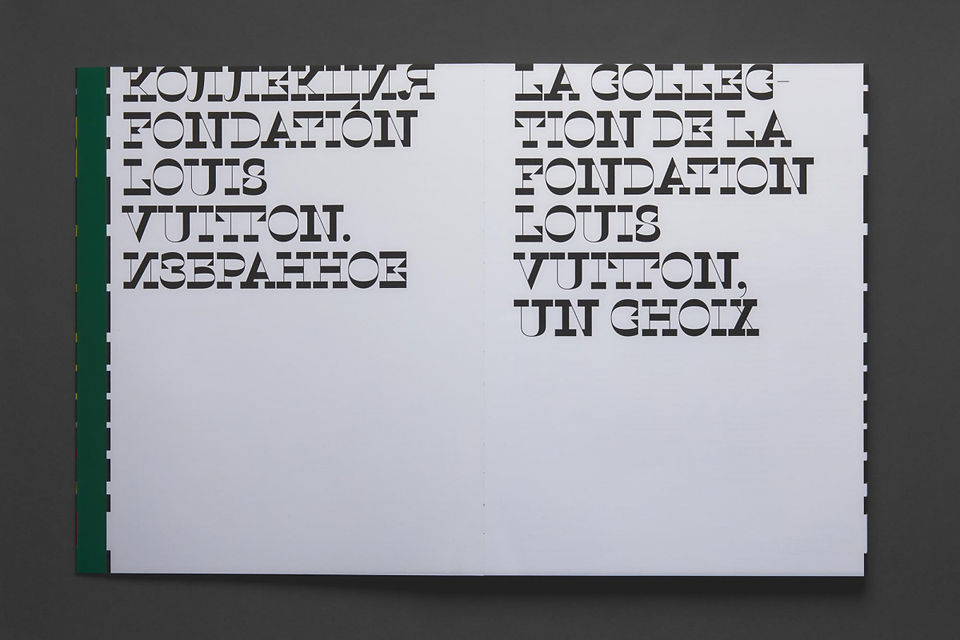 КОЛЛЕКЦИЯ
FONDATION
LOUIS
VUITTON.
ИЗБРАННОЕ
LA COLLEC-
TION DE LA
FONDATION
LOUIS
VUITTON,
UN CHOIX